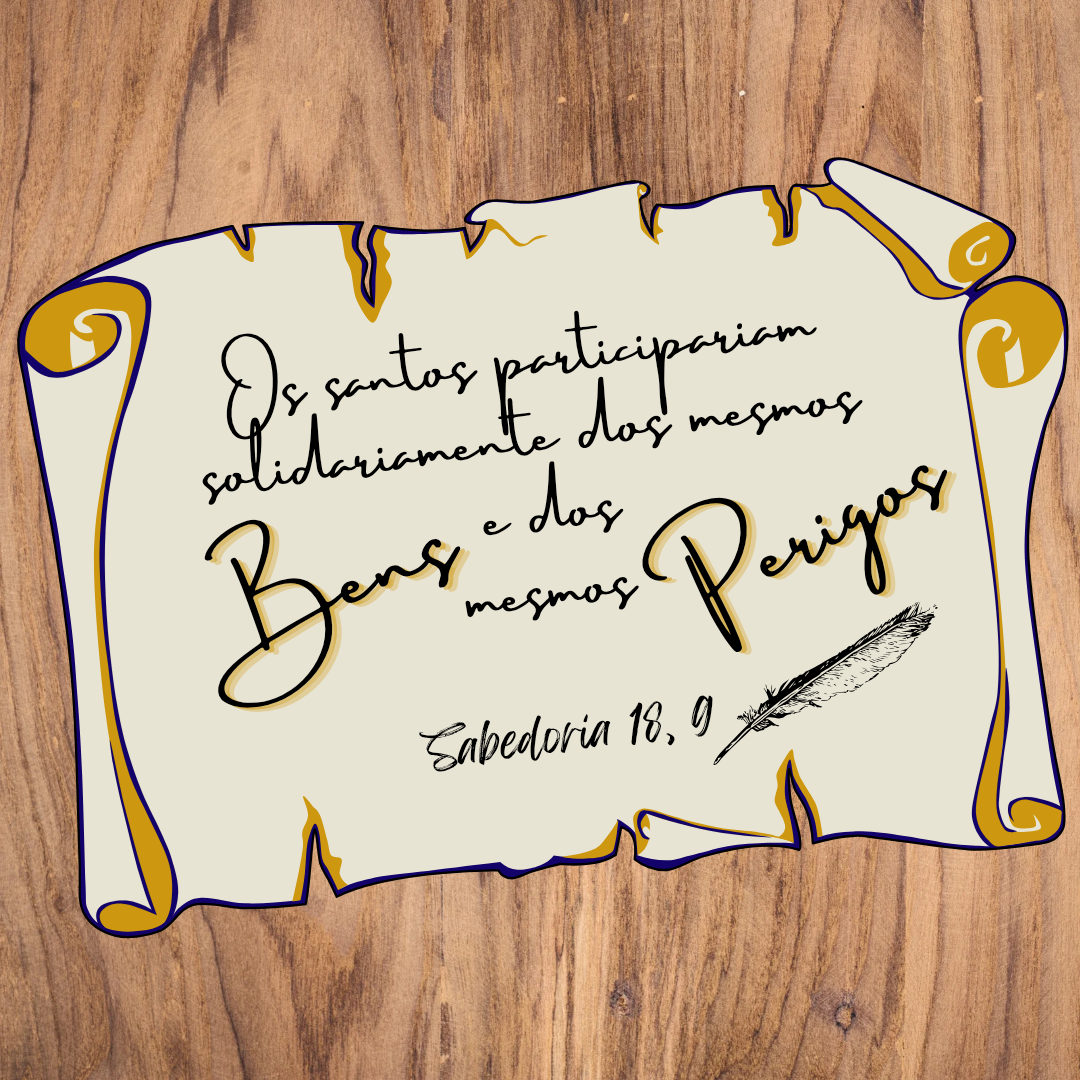 Os santos participariam
solidariamente dos mesmos
Bens e dos
mesmos Perigos
Sabedoria 18, 9